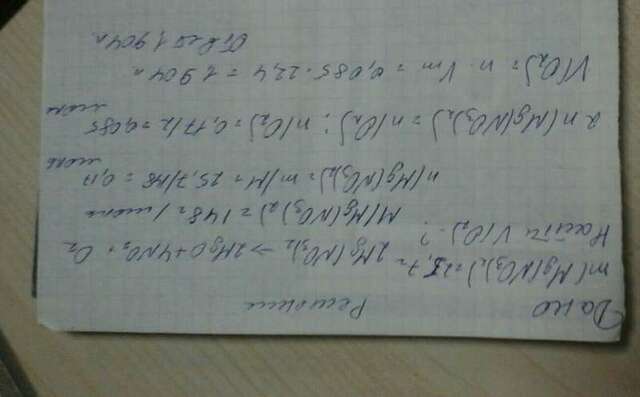 Дано Решение
m(Mg(NO3)2)=25,7г 2Mg(NO3)2 → 2MgO+4NO2+O2
Найти V(O2)-?
M(Mg(NO3)2)=148г/моль
n(Mg(NO3)2)=m/M=25,7/148=0,17 моль
2n(Mg(NO3)2)=n(O2); n(O2)=0,17/2=0,085 моль
V(O2)=n·Vm=0,085·22,4=1,904л
Ответ 1,904л